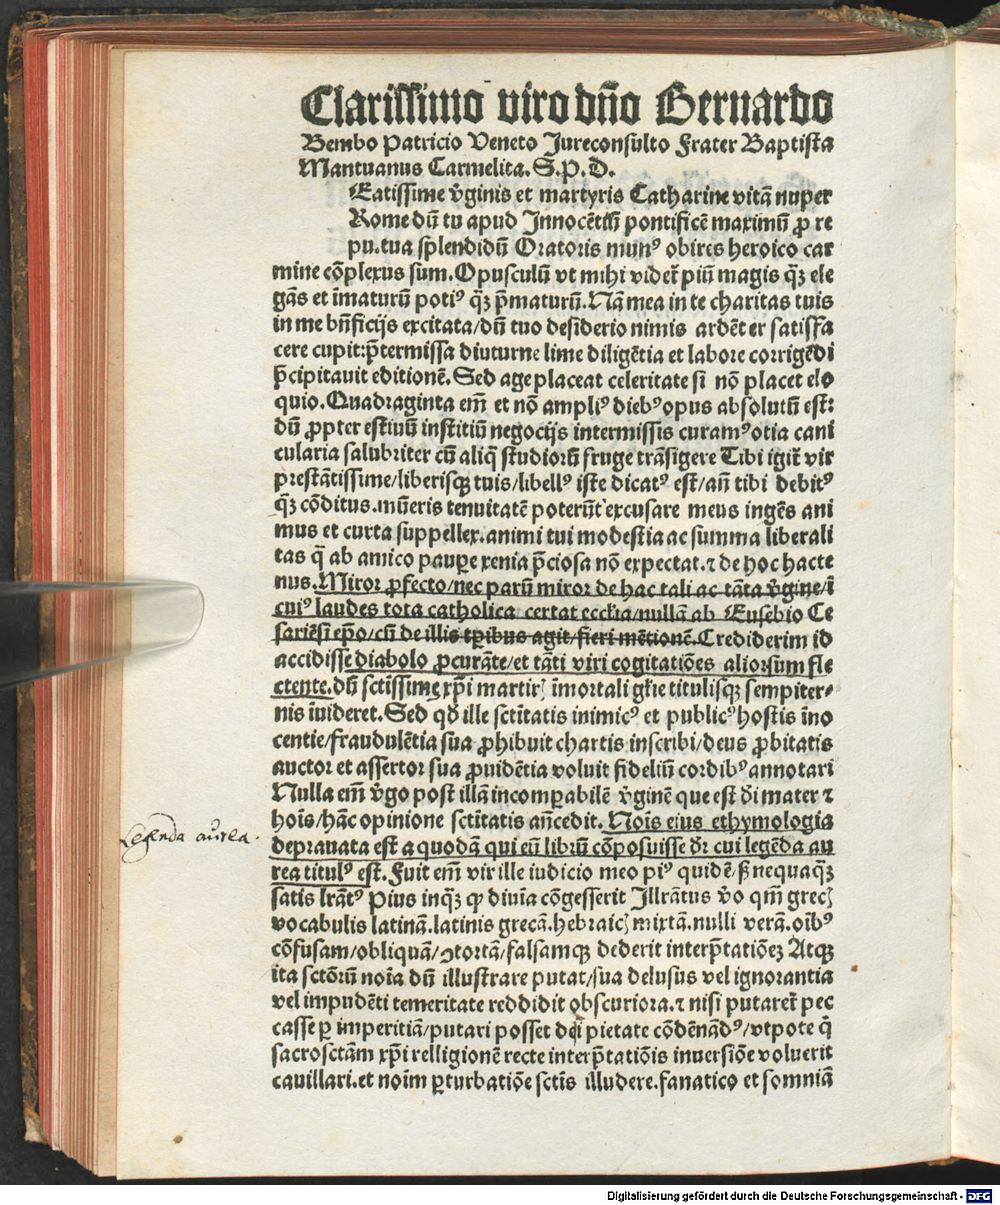 Clarissimo viro dño Bernardo
Bembo Patricio Veneto Jureconsulto Frater Baptista
Mantuanus Carmelita. S. P. D.
Eatissime v̄ginis et martyris Catharine vitā nuper
Rome dū tu apud Innocētiū pontificē maximū ꝓ re
pu. tua splendidū Oratoris munꝰ obires heroico car
mine cōplexus sum. Opusculū vt mihi videt̄ piū magis qꝫ̄ ele
gās et īmaturū potiꝰ qꝫ̄ p̄maturū. Nā mea in te charitas tuis
in me bn̄ficijs excitata/dū tuo desiderio nimis ardēter satisfa
cere cupit: p̄termissa diuturne lime diligētia et labore corrigēdi
p̄cipitauit editionē. Sed age placeat celeritate si nō placet elo
quio. Quadraginta em̄ et nō ampliꝰ diebꝰ opus absolutū est:
dū ꝓpter estiuū institiū negocijs intermissis curamꝰ otia cani
cularia salubriter cū aliq̄ studiorū fruge trāsigere Tibi igit̄ vir
prestātissime/liberisqꝫ tuis/libellꝰ iste dicatꝰ est/an̄ tibi debitꝰ
qꝫ̄ cōditus. mūeris tenuitatē poterūt excusare meus ingēs ani
mus et curta suppellex. animi tui modestia ac summa liberali
tas q̄ ab amico paupe xenia p̄ciosa nō expectat. ⁊ de hoc hacte
nus. Miror ꝓfecto/nec parū miror de hac tali ac tāta v̄gine/ī
cuiꝰ laudes tota catholica certat eccl̄ia/nullā ab Eusebio Ce
sariēsi ep̄o/cū de illis tꝑibus agit/fieri mētionē. Crediderim id
accidisse diabolo ꝓcurāte/et tāti viri cogitatiōes aliorsum fle
ctente. dū sctīssime xp̄i martirꝫ īmortali gl̄ie titulisqꝫ sempiter-
nis īuideret. Sed qd̄ ille sctītatis inimicꝰ et publicꝰ hostis īno
centie/fraudulētia sua ꝓhibuit chartis inscribi/deus ꝓbitatis
auctor et assertor sua ꝓuidētia voluit fideliū cordibꝰ annotari
Nulla em̄ v̄go post illā incomꝑabilē v̄ginē que est dī mater ⁊
hoīs/hāc opinione sctītatis an̄cedit. Noīs eius ethymologia
deprauata est a quodā qui eū librū cōposuisse dr̄ cui legēda au
rea titulꝰ est. Fuit em̄ vir ille iudicio meo piꝰ quidē/sꝫ nequaqꝫ̄
satis lr̄atꝰ Pius inqꝫ̄ ꝙ diuīa cōgesserit Illr̄atus v̄o qm̄ grecꝫ
vocabulis latinā. latinis grecā. hebraicꝫ mixtā. nulli verā. oībꝰ
cōfusam/obliquā/ꝯtortā/falsamqꝫ dederit interp̄tatiōeꝫ Atqꝫ
ita sctōrū noīa dū illustrare putat/sua delusus vel ignorantia
vel impudēti temeritate reddidit obscuriora. ⁊ nisi putaret̄ pec
casse ꝑ imperitiā/putari posset dei pietate cōdēnādꝰ/vtpote q̄
sacrosctām xp̄i relligionē recte interp̄tatiōis inuersiōe voluerit
cauillari. et noīm ꝑturbatiōe sctīs illudere. fanatico et somniā
Legenda aurea.
Digitalisierung gefördert durch die Deutsche Forschungsgemeinschaft - DFG